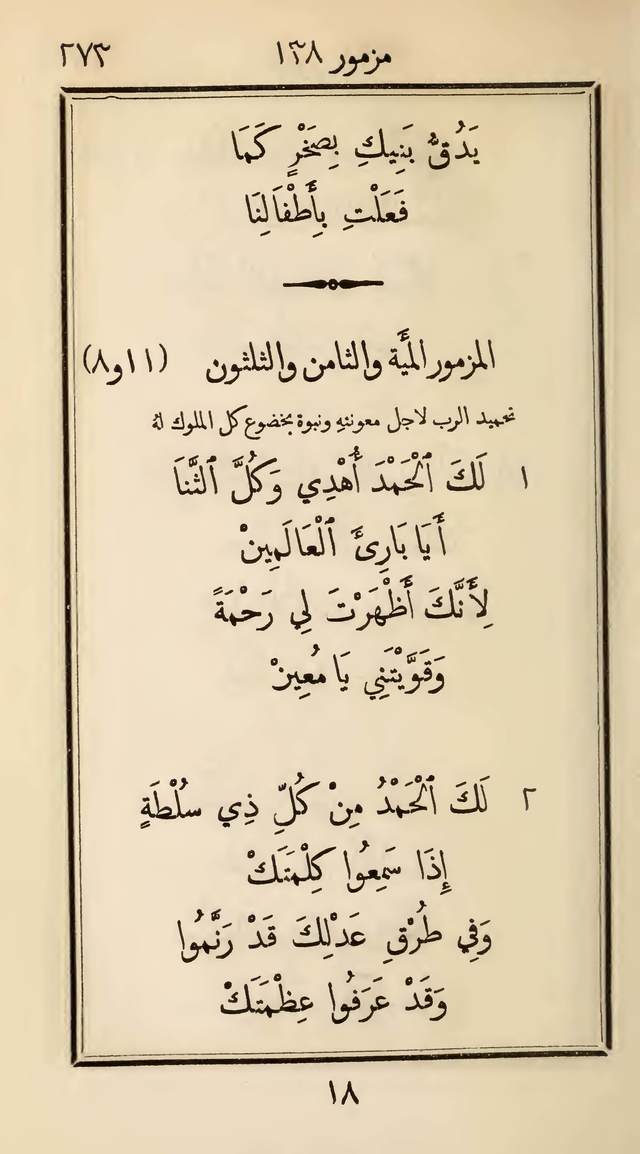 مزمور ١٣٨ ٢٧٣
يَدُقُّ بَنِيكِ بِصَخْرٍ كَمَا
فَعَلْتِ بِأَطْفَالِنَا
المزمور المأَية والثامن والثلثون (١١ و٨)
تحميد الرب لاجل معونتهِ ونبوة بخضوع كل الملوك لهُ
١ لَكَ ٱلْحَمْدَ أُهْدِي وَكُلَّ ٱلثَّنَا
أَيَا بَارِئَ ٱلْعَالَمِينْ
لِأَنَّكَ أَظْهَرْتَ لِي رَحْمَةً
وَقَوَّيْتَنِي يَا مُعِينْ
٢ لَكَ ٱلْحَمْدُ مِنْ كُلِّ ذِي سُلْطَةٍ
إِذَا سَمِعُوا كِلْمَتَكْ
وَفِي طُرْقِ عَدْلِكَ قَدْ رَنَّمُوا
وَقَدْ عَرَفُوا عِظْمَتَكْ
١٨